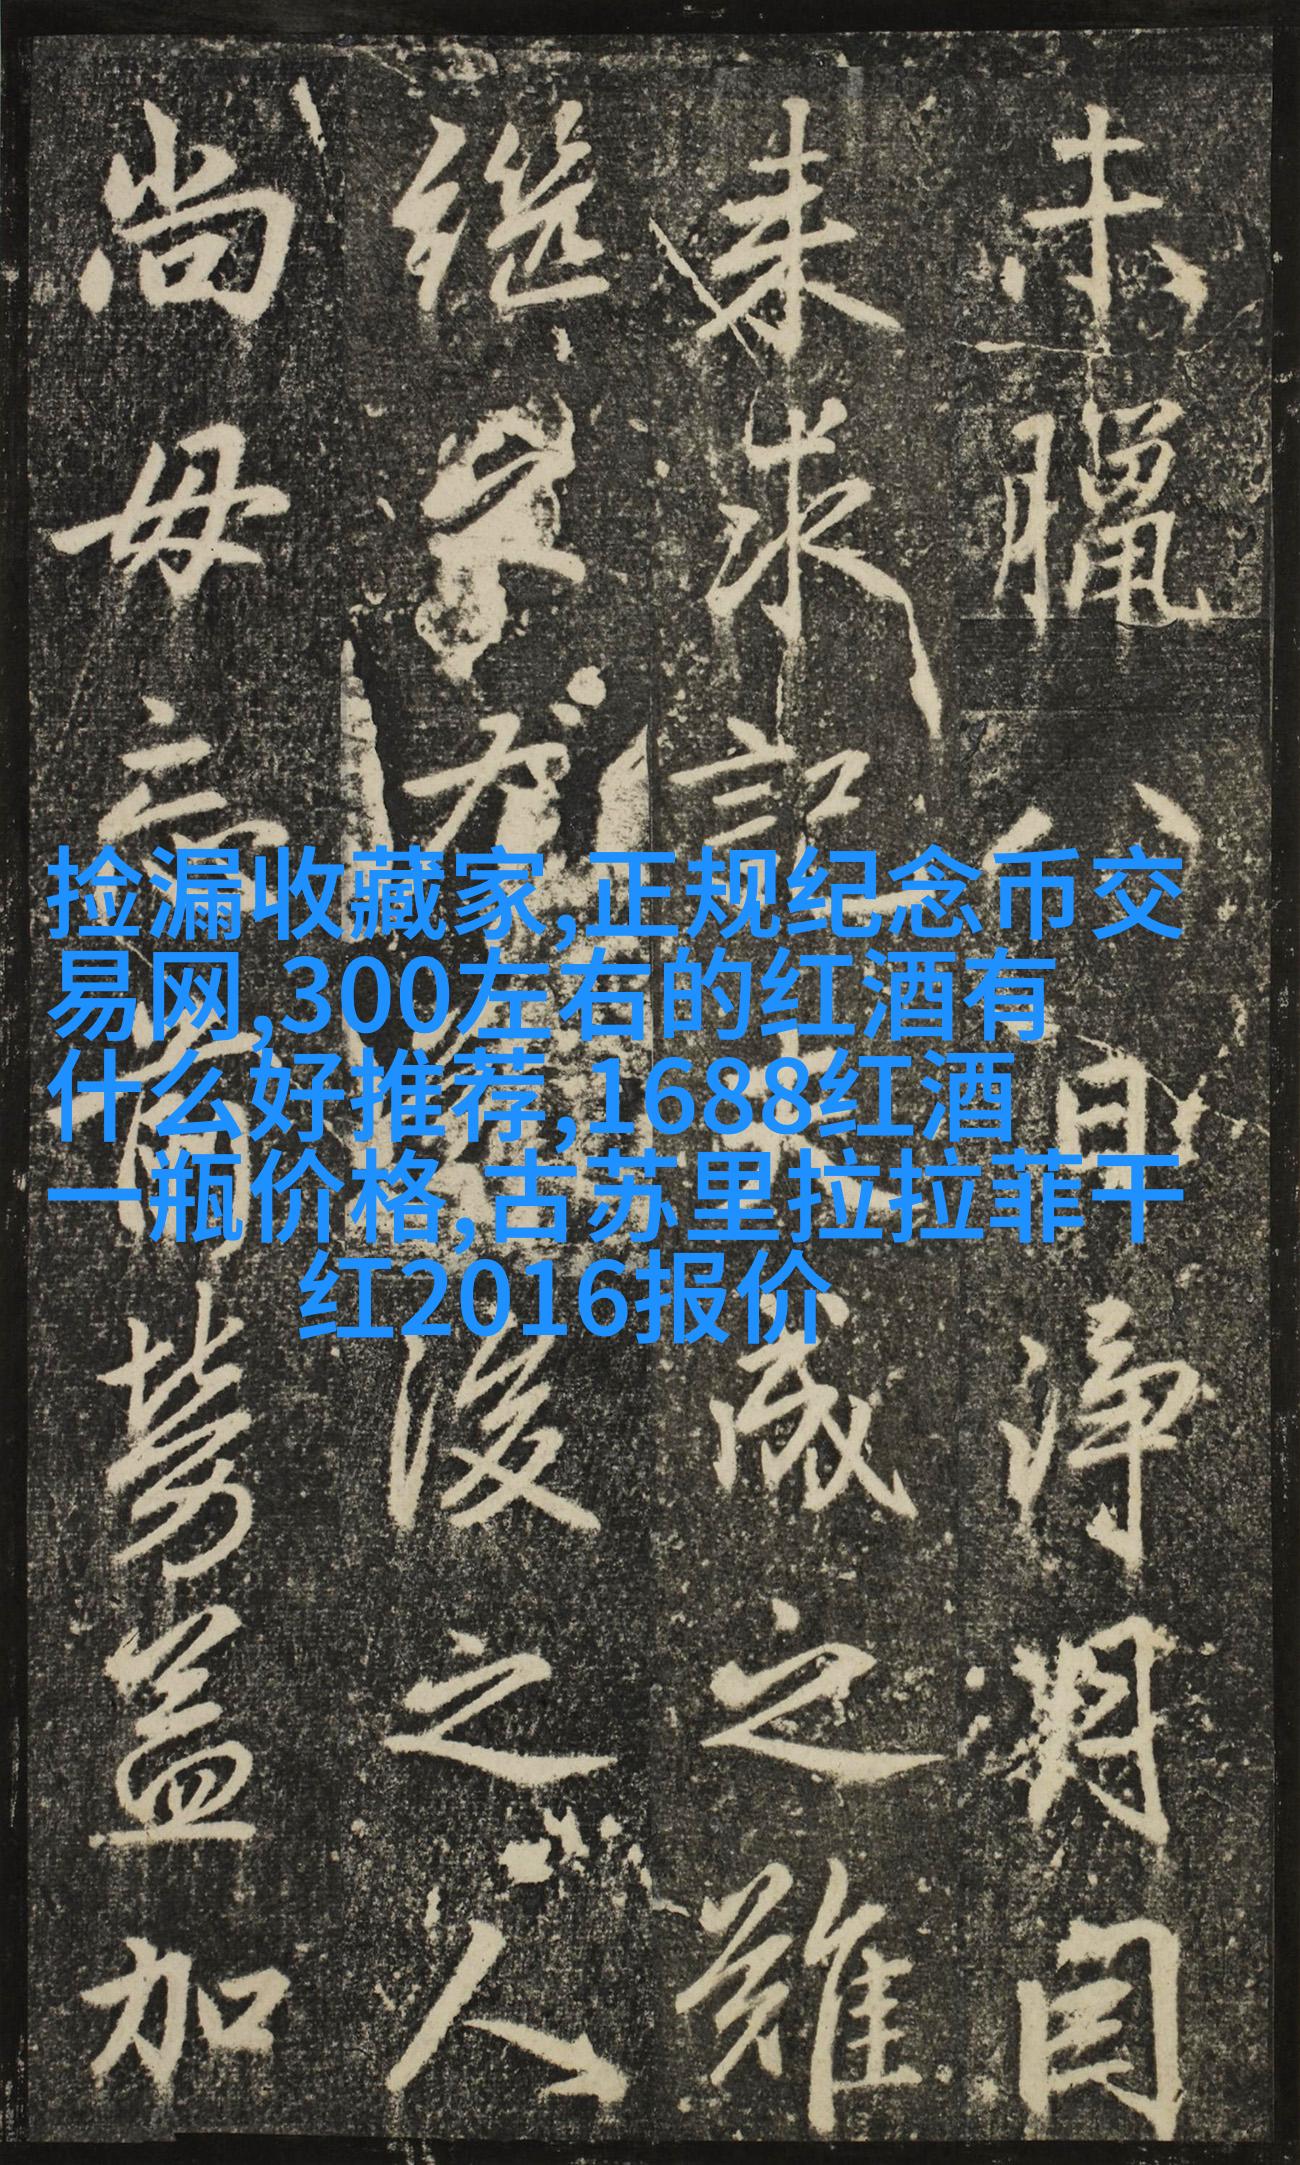 捡漏收藏家,正规纪念币交
易网,300左右的红酒有
什么好推荐,1688红酒
一瓶价格,古苏里拉拉菲干
红2016报价
未臘八日淨
来求記之難
繼後之人
尚毋忘前勞益加